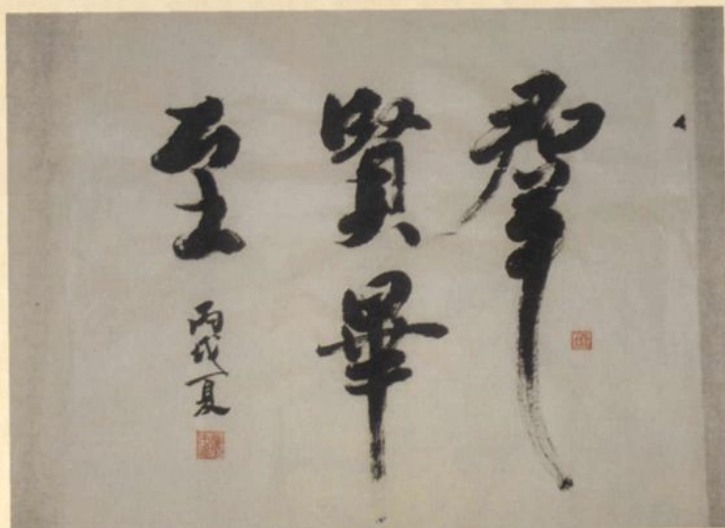 羣
賢畢
至
丙戌夏